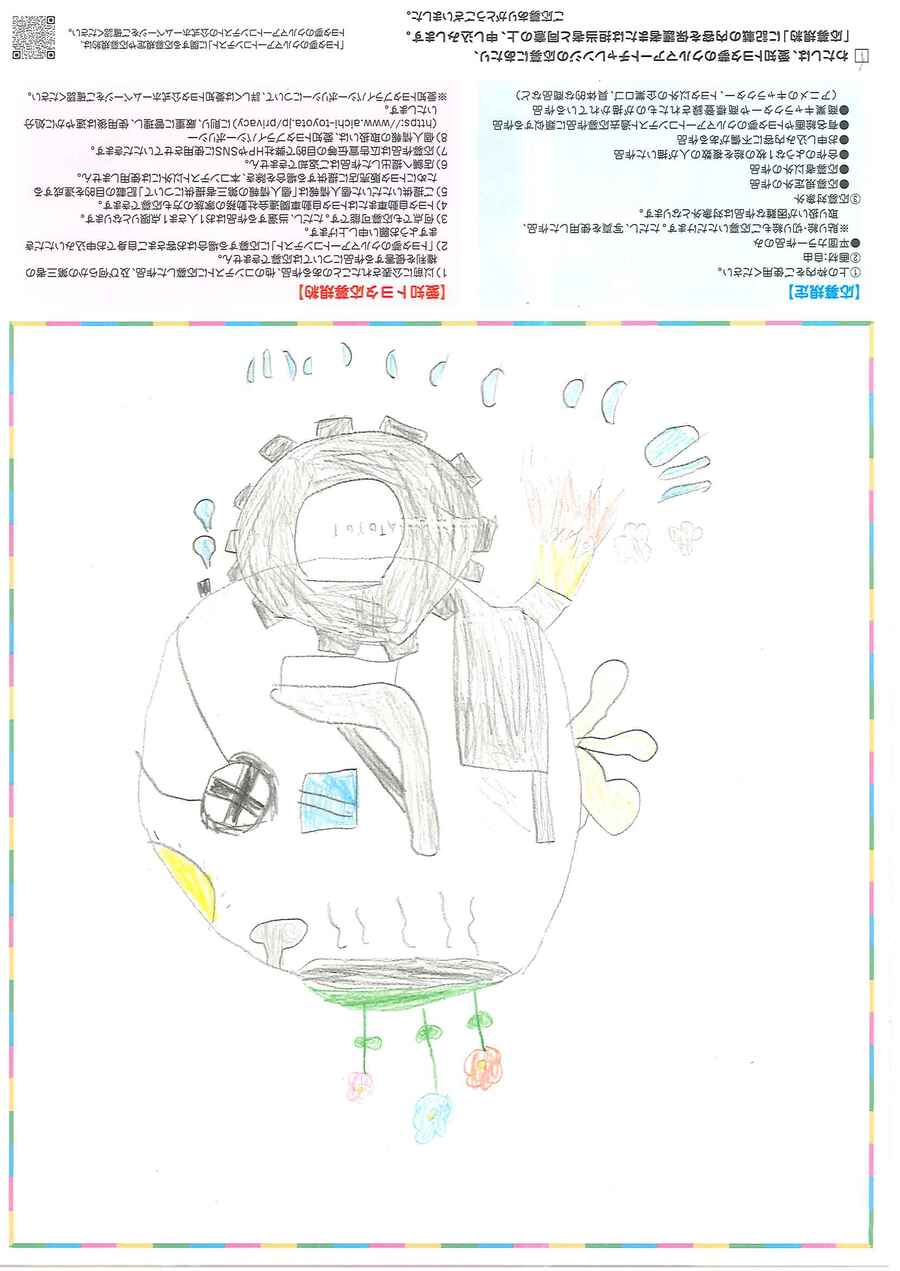 TOYOTA
【応募規定】
①上の枠内をご使用ください。
②画材:自由
●平面カラー作品のみ
※貼り絵・切り絵もご応募いただけます。ただし、写真を使用した作品、
取り扱いが困難な作品は対象外となります。
③応募対象外
●応募規定外の作品
●応募者以外の作品
●合作のような1枚の絵を複数の人が描いた作品
●お申し込み内容に不備がある作品
●有名絵画やトヨタ夢のクルマアートコンテスト過去応募作品に類似する作品
●商業キャラクターや商標登録されたものが描かれている作品
(アニメのキャラクター、トヨタ以外の企業ロゴ、具体的な商品など)
【愛知トヨタ応募規約】
1)以前に公表されたことのある作品、他のコンテストに応募した作品、及び何らかの第三者の
権利を侵害する作品については応募できません。
2)「トヨタ夢のクルマアートコンテスト」に応募する場合はお客さまご自身でお申込みいただき
ますようお願い申し上げます。
3)何点でも応募可能です。ただし、当選する作品はお1人さま1点限りとなります。
4)トヨタ自動車またはトヨタ自動車関連会社勤務の家族の方も応募できます。
5)ご提供いただいた個人情報は「個人情報の第三者提供について」記載の目的を達成する
ためにトヨタ販売店に提供する場合を除き、本コンテスト以外には使用しません。
6)店舗へ提出した作品はご返却できません。
7)応募作品は広告宣伝等の目的で弊社HPやSNSに使用させていただきます。
8)個人情報の取扱いは、愛知トヨタプライバシーポリシー
(https://www.aichi-toyota.jp/privacy)に則り、厳重に管理し、使用後は速やかに処分
いたします。
※愛知トヨタプライバシーポリシーについて、詳しくは愛知トヨタ公式ホームページをご確認ください。
わたしは、愛知トヨタの夢のクルマアートチャレンジの応募にあたり、
「応募規約」に記載の内容を保護者または担当者と同意の上、申し込みします。
ご応募ありがとうございました。
「トヨタ夢のクルマアートコンテスト」に関する応募規定や応募規約は、
トヨタ夢のクルマアートコンテストの公式ホームページをご確認ください。